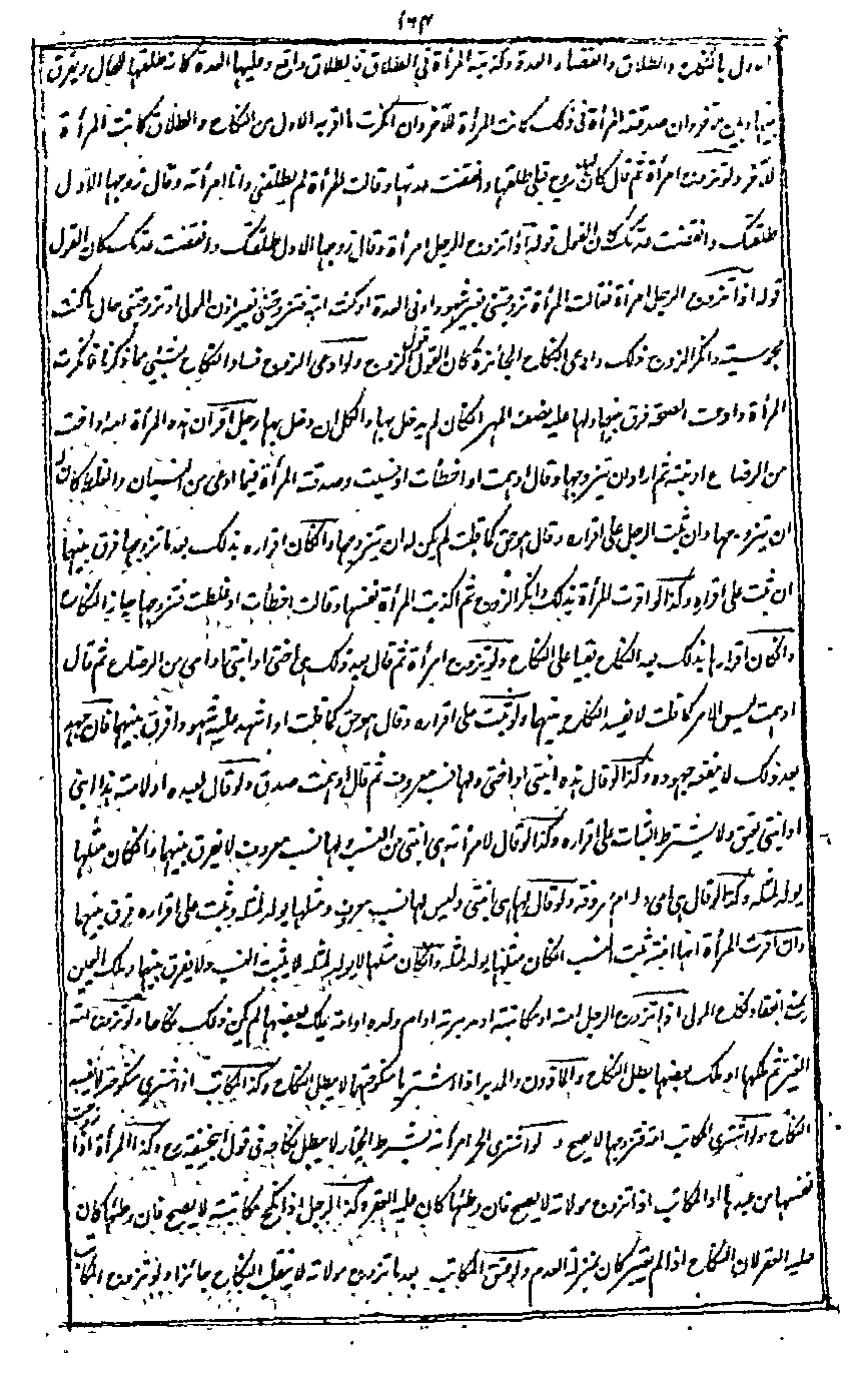 ١٦٣
الاول بالنكاح والطلاق وانقضاء العدة وكذبته المرأة فى الطلاق فالطلاق واقع وعليها العدة كانه طلقها للحال ويفرق
بينها وبين الآخر وان صدقته المرأة فى ذلك كانت المرأة للآخر وان انكرت ما اقر به الاول من النكاح والطلاق كانت المرأة
للآخر ولو تزوج امرأة ثم قال كان لها زوج قبلى طلقها وانقضت عدتها وقالت المرأة لم يطلقنى وانا امرأته وقال زوجها الاول
طلقتك وانقضت عدتك كان القول قوله اذا تزوج الرجل امرأة وقال زوجها الاول طلقتك وانقضت عدتك كان القول
قوله اذا تزوج الرجل امرأة فقالت المرأة تزوجتنى بغير شهود او فى العدة او كنت امة فتزوجتنى بغير اذن المولى او تزوجتنى حال ما كنت
مجوسية وانكر الزوج ذلك وادعى النكاح الجائزة كان القول قول الزوج ولو ادعى الزوج فساد النكاح بشئ مما ذكرنا فانكرت
المرأة وادعت الصحة فرق بينهما ولها عليه نصف المهر ان كان لم يدخل بها والكل ان دخل بها رجل اقر ان هذه المرأة امه او اخته
من الرضاع او بنته ثم اراد ان يتزوجها وقال اوهمت او اخطأت او نسيت وصدقته المرأة فيما ادعى من النسيان والغلط كان له
ان يتزوجها وان ثبت الرجل على اقراره وقال هو حق كما قلت لم يكن له ان يتزوجها وان كان اقراره بذلك بعد ما تزوجها فرق بينهما
ان ثبت على اقراره وكذا لو اقرت المرأة بذلك وانكر الزوج ثم اكذبت المرأة نفسها وقالت اخطأت او غلطت فتزوجها جاز النكاح
وان كان اقرارها بذلك بعد النكاح بقيا على النكاح ولو تزوج امرأة ثم قال بعد ذلك هى اختى او ابنتى او امى من الرضاع ثم قال
اوهمت ليس الامر كما قلت لا يفسد النكاح بينهما ولو ثبت على اقراره وقال هو حق كما قلت او اشهد عليه شهودا فرق بينهما فان جحد
بعد ذلك لا ينفعه جحوده وكذا لو قال هذه ابنتى او اختى ولها نسب معروف ثم قال اوهمت صدق ولو قال لعبده او لامته هذا ابنى
او ابنتى يعتق ولا يشترط الثبات على اقراره وكذا لو قال لامرأته هى ابنتى من النسب ولها نسب معروف لا يفرق بينهما وان كان مثلها
يولد لمثله وكذا لو قال هى امى وله ام معروفة ولو قال لها هى ابنتى وليس لها نسب معروف ومثلها يولد لمثله وثبت على اقراره فرق بينهما
وان اقرت المرأة انها ابنته ثبت النسب ان كان مثلها يولد لمثله وان كان مثلها لا يولد لمثله لا يثبت النسب ولا يفرق بينهما وملك اليمين
يمنع انعقاد نكاح المولى اذا تزوج الرجل امته او مكاتبته او مدبرته او ام ولده او امة يملك بعضها لم يكن ذلك نكاحا ولو تزوج امة
الغير ثم ملكها او ملك بعضها بطل النكاح والمأذون والمدبر اذا اشتريا منكوحتهما لا يبطل النكاح وكذا المكاتب اذا اشترى منكوحته لا يفسد
النكاح ولو اشترى المكاتب امة فتزوجها لا يصح ولو اشترى الحر امرأته بشرط الخيار لا يبطل نكاحه فى قول ابى حنيفة رح وكذا المرأة اذا زوجت
نفسها من عبدها او المكاتب اذا تزوج مولاته لا يصح فان وطئها كان عليه العقر وكذا الرجل اذا نكح مكاتبته لا يصح فان وطئها كان
عليه العقر لان النكاح اذا لم يعتبر كان بمنزلة العدم ولو عتق المكاتب بعد ما تزوج مولاته لا ينقلب النكاح جائزا ولو تزوج المكاتب